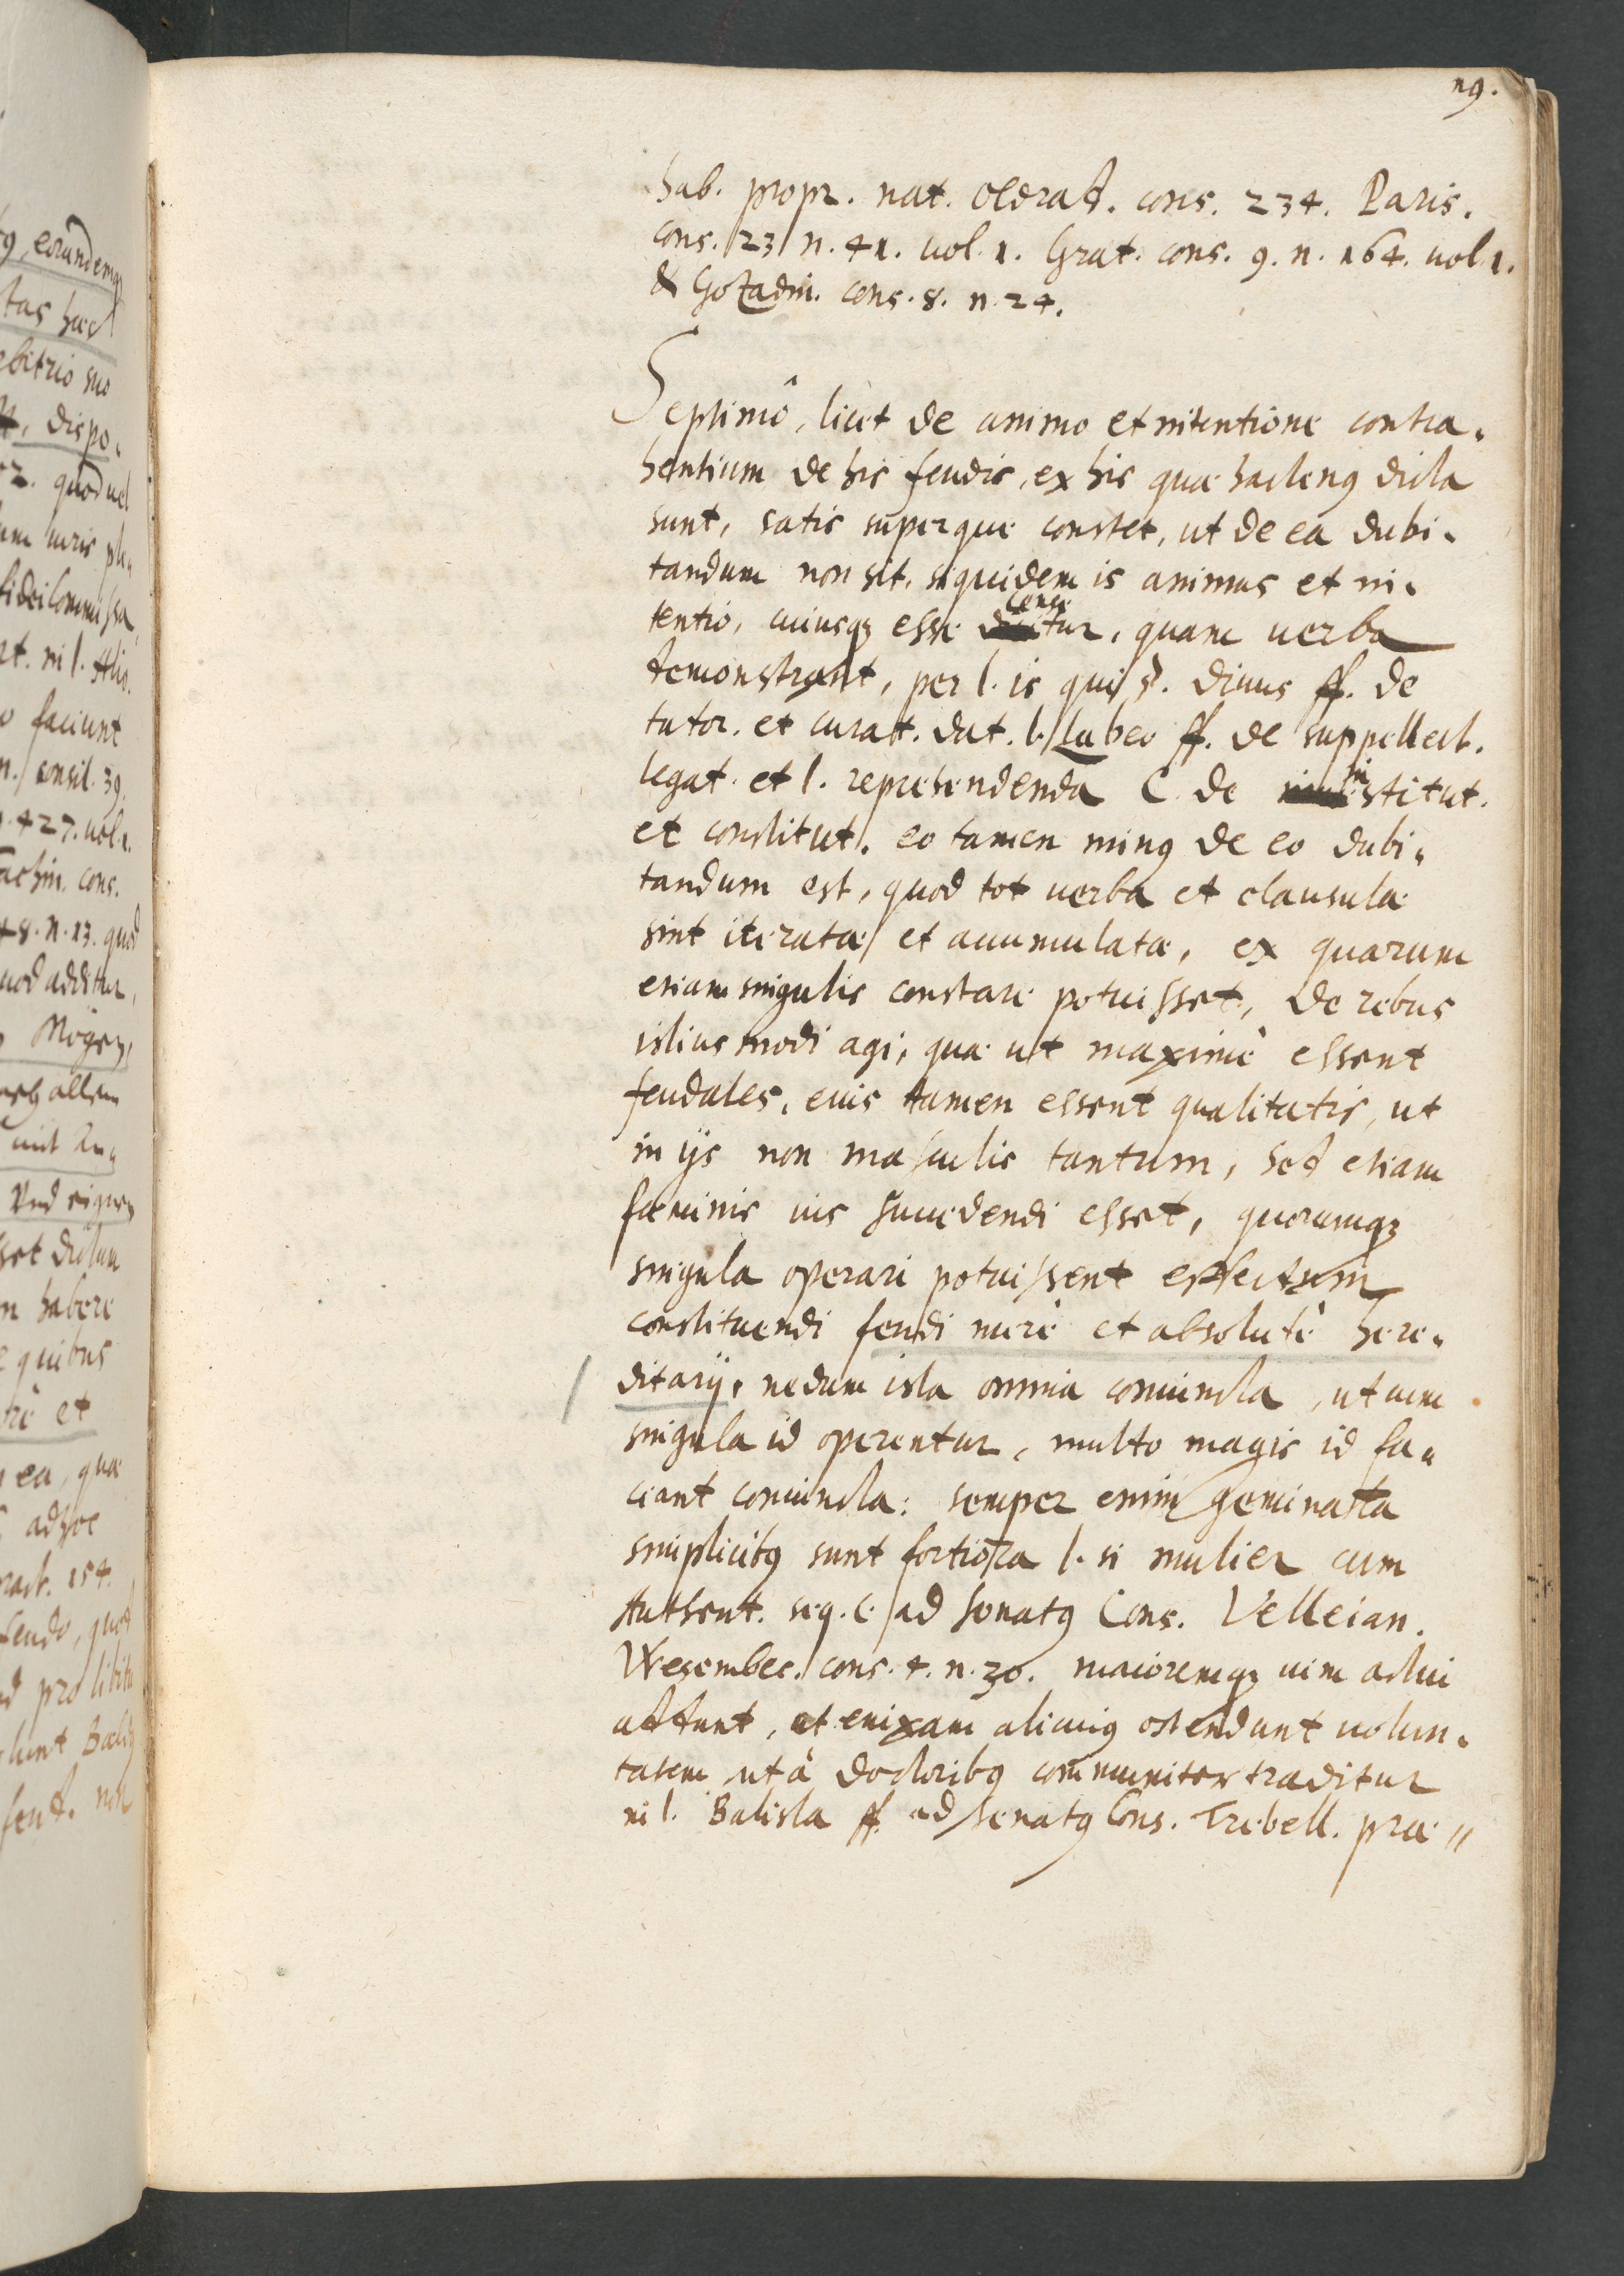 119.
hab. propr. nat. Oldrad. cons. 234. Paris.
cons. 23 n. 41. vol. 1. Grat. cons. 9. n. 164. vol. 1.
& Gozadin. cons. 8. n. 24.
Septimô, licet de animo et intentione contra„
hentium de his feudis, ex his quæ hactenus dicta
sunt, satis superque constet, ut de ea dubi„
tandum non sit, siquidem is animus et in„
tentio, cuiusq; esse censetur, quam verba
demonstrant, per l. is qui §. divus ff. de
tutor. et curat. dat. l. Labeo ff. de suppellect.
legat. et l. reprehendenda C. de institut.
et constitut. eo tamen minus de eo dubi„
tandum est, quod tot verba et clausulæ
sint iteratæ et acumulatæ, ex quarum
etiam singulis constare potuisset, de rebus
istiusmodi agi, quæ ut maximè essent
feudales, eius tamen essent qualitatis, ut
in ijs non masculis tantum, sed etiam
fœminis ius succedendi esset, quorumq;
singula operari potuissent effectum
constituendi feudi merè et absolutè here„
ditarij, nedum ista omnia coniuncta, ut cum
singula id operentur, multo magis id fa„
ciant coniuncta: semper enim geminata
simplicibus sunt fortiora l. si mulier cum
Authent. seq. C. ad senatus Cons. Velleian.
Wesembec. cons. 4. n. 30. maioremq; vim actui
addunt, et enixam alicuius ostendunt volun„
tatem ut à doctoribus communiter traditur
in l. Balista ff. ad senatus Cons. Trebell. præ„